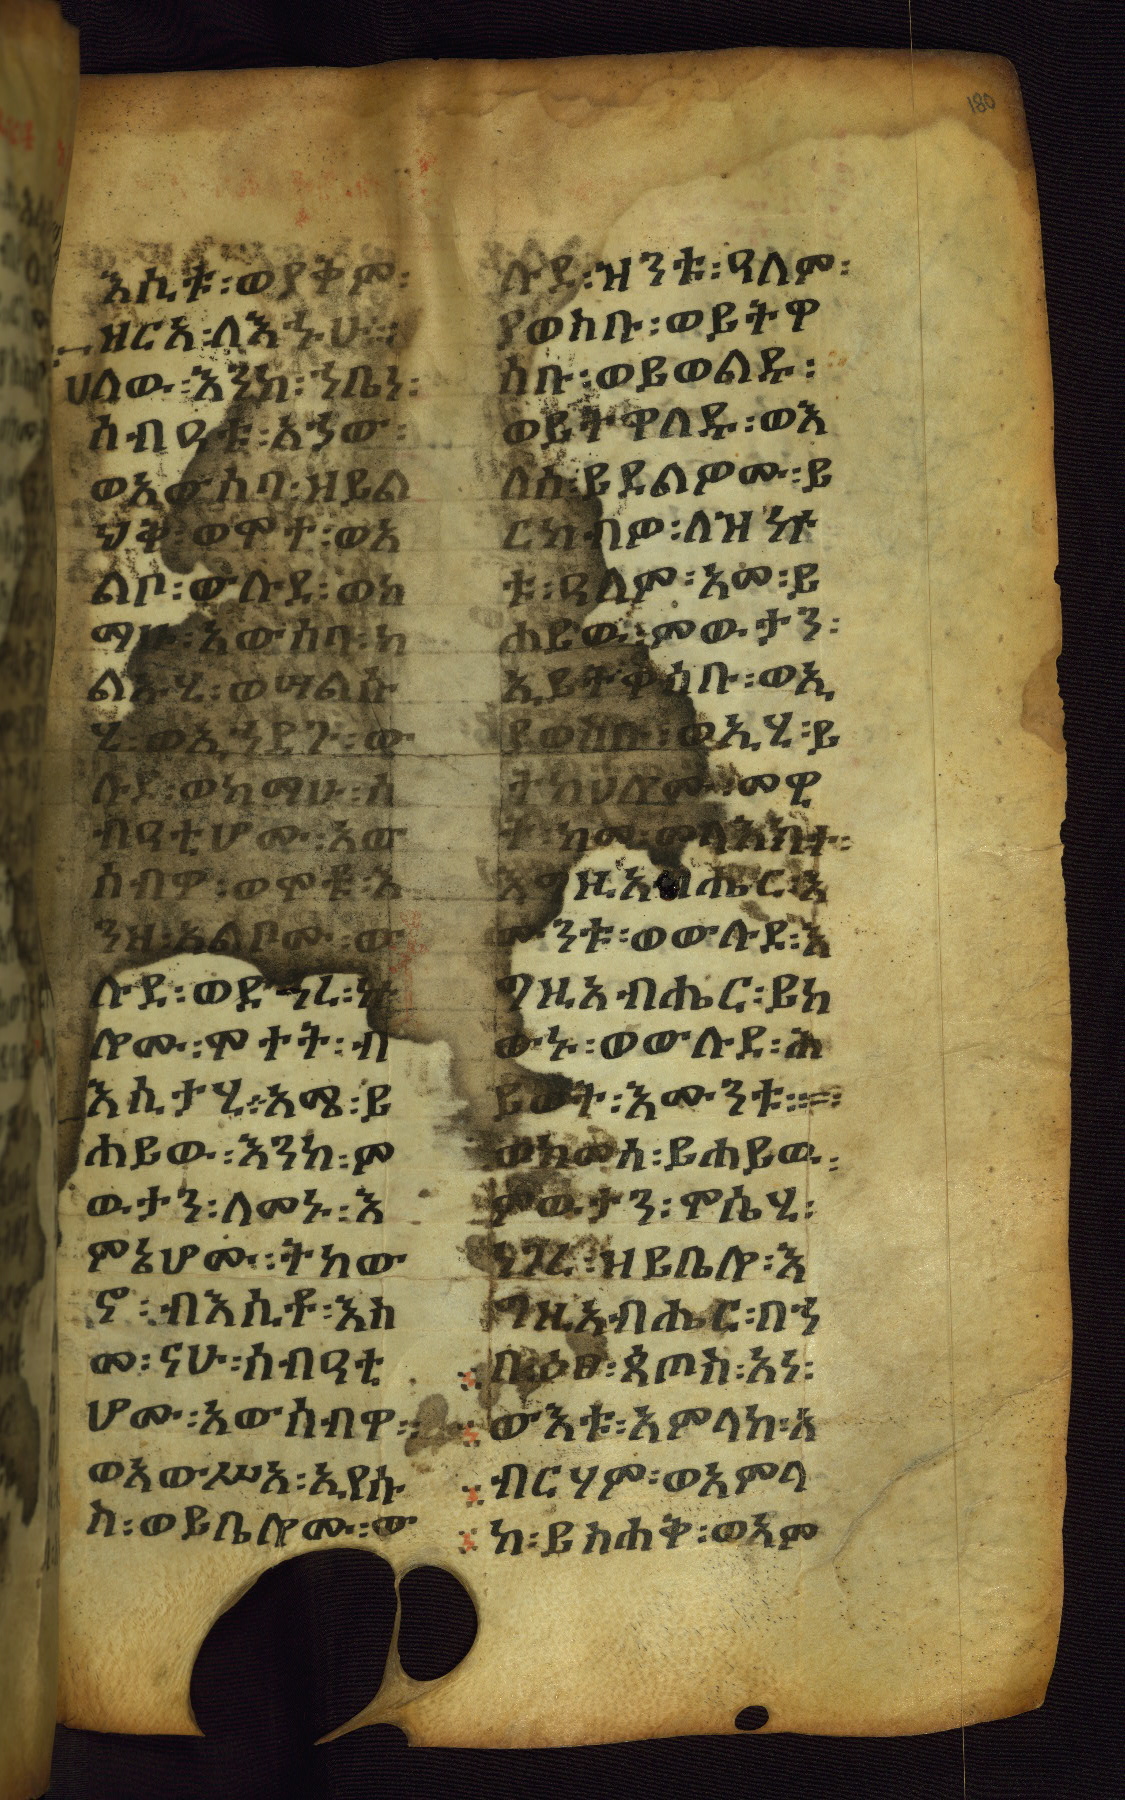 180
እሲቱ፡ወያቅም፡
ዝርአ፡ለእኁሁ፡፡
ሀለው፡እንከ፡ንቤነ፡
ሰብዓቱ፡አኀው፡
ወአውሰባ፡ዝይል
ህቅ፡ወሞተ፡ወአ
ልቦ፡ውሉደ፡ወከ
ማሁ፡አውሰባ፡ካ
ልኡሂ፡ወሣልሱ
ሂ፡ወኢኀደጉ፡ው
ሉደ፡ወከማሁ፡ሰ
ብዓቲሆሙ፡አው
ሰብዋ፡ወሞቱ፡እ
ንዘ፡አልቦሙ፡ው
ሉደ፡ወድኅረ፡ኵ
ሎሙ፡ሞተት፡ብ
እሲታሂ፡አሜ፡ይ
ሐይው፡እንከ፡ም
ውታን፡ለመኑ፡እ
ምኔሆሙ፡ትከው
ኖ፡ብእሲቶ፡እስ
መ፡ናሁ፡ሰብዓቲ
ሆሙ፡አውሰብዋ፡፡
ወአውሥአ፡ኢየሱ
ስ፡ወይቤሎሙ፡ው
ሉደ፡ዝንቱ፡ዓለም፡
ያወስቡ፡ወይትዋ
ሰቡ፡ወይወልዱ፡
ወይትዋለዱ፡ወእ
ለሰ፡ይደልዎሙ፡ይ
ርከብዎ፡ለዝንቱ
ቱ፡ዓለም፡አመ፡ይ
ሐይው፡ምውታን፡
ኢይትዋሰቡ፡ወኢ
ያወስቡ፡ወኢሂ፡ይ
ትከሀሎሙ፡መዊ
ተ፡ከመ፡መላእክተ፡
እግዚአብሔር፡እ
ሙንቱ፡ወውሉደ፡እ
ግዚአብሔር፡ይከ
ውኑ፡ወውሉደ፡ሕ
ይወት፡እሙንቱ፡፡
ወከመሰ፡ይሐይው፡
ምውታን፡ሞሴሂ፡
ነገረ፡ዘይቤሎ፡እ
ግዚአብሔር፡በኀ
በ፡ዕፀ፡ጳጦስ፡አነ፡
ውእቱ፡አምላከ፡አ
ብርሃም፡ወአምላ
ከ፡ይስሐቅ፡ወአም